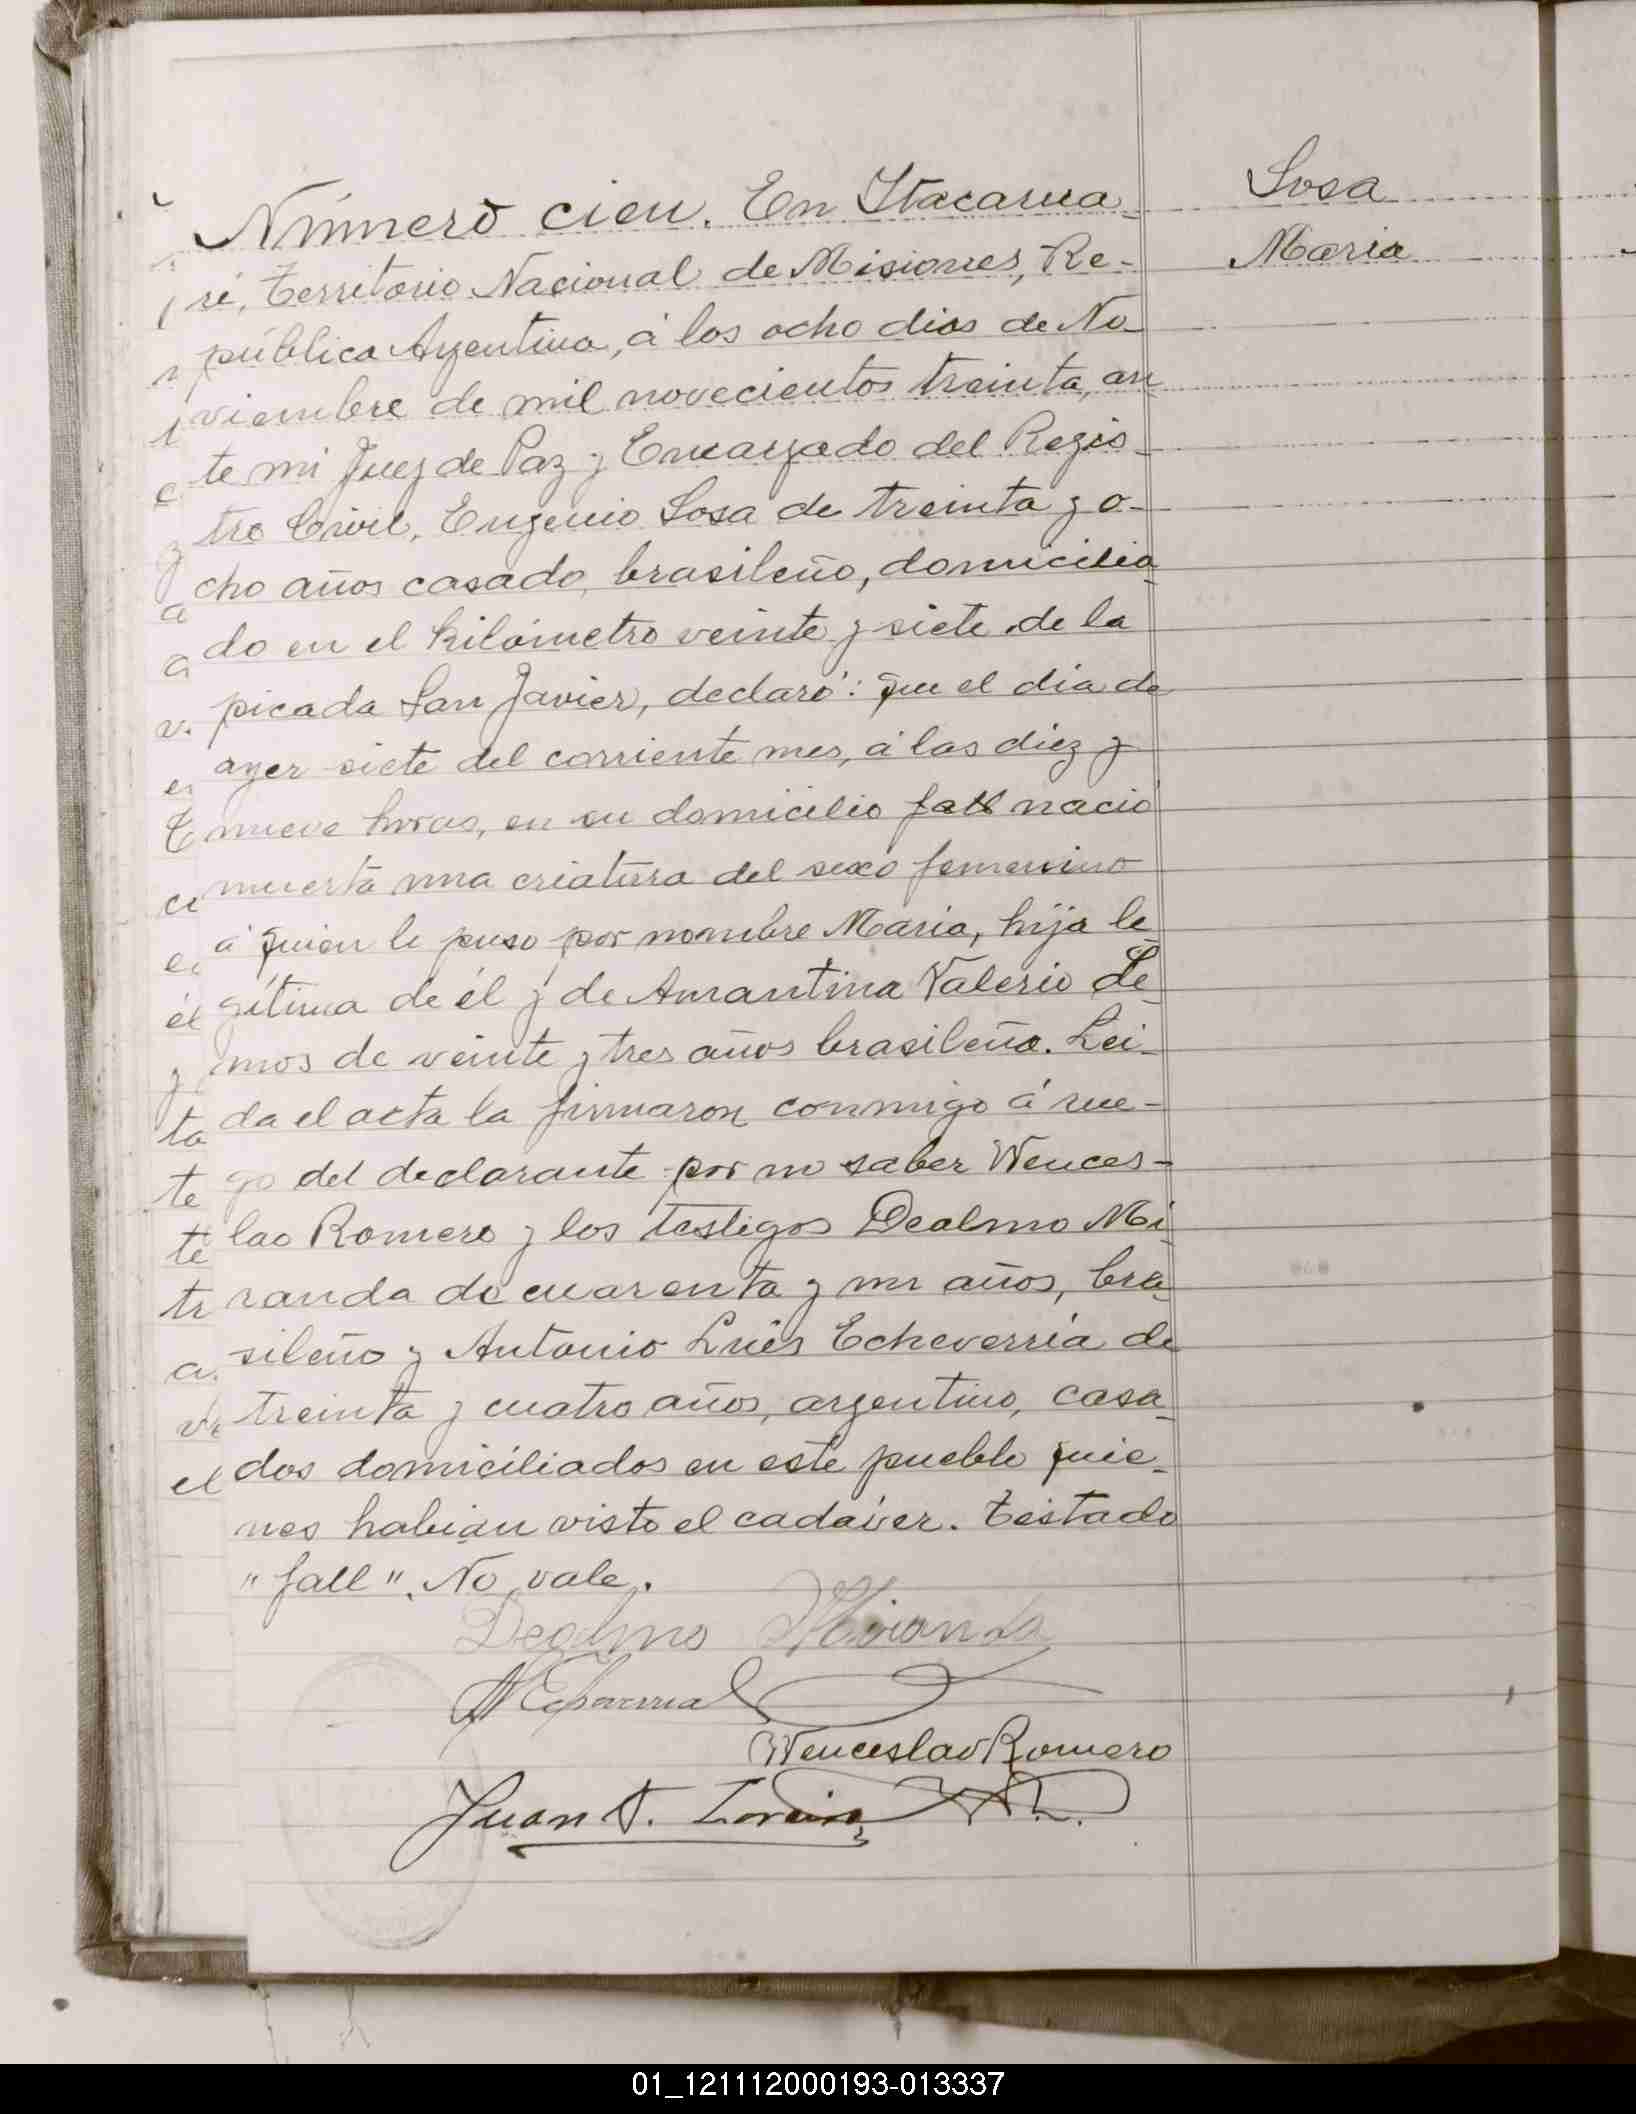 Número cien. En Itacarua-
Sosa
Maria
ré, Territorio Nacional de Misiones, Re-
pública Argentina, á los ocho dias de No-
viembre de mil novecientos treinta, an-
te mi Juez de Paz y Encargado del Regis-
tro Civil, Eugenio Sosa de treinta y o-
cho años casado, brasileño, domicilia-
do en el kilómetro veinte y siete de la
picada San Javier, declaró: que el dia de
ayer siete del corriente mes, á las diez y
nueve horas, en su domicilio fall nació
muerta una criatura del sexo femenino
á quien le puso por nombre Maria, hija le-
gítima de él y de Amantina Valerio Le-
mos de veinte y tres años brasileña. Lei-
da el acta la firmaron conmigo á rue-
go del declarante por no saber Wences-
lao Romero y los testigos Dealmo Mi-
randa de cuarenta y un años, bra-
sileño y Antonio Luis Echeverría de
treinta y cuatro años, argentino, casa-
dos domiciliados en este pueblo quie-
nes habian visto el cadáver. Testado
"fall". No vale.
Dealmo Miranda
Echeverria
Wenceslao Romero
Juan
01_121112000193-013337